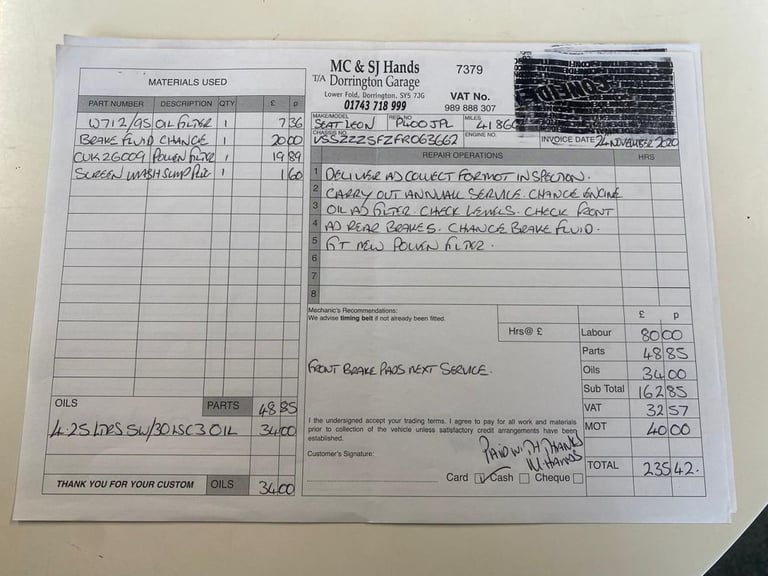 MATERIALS USED
PART NUMBER DESCRIPTION QTY £ p
W712/95 OIL FILTER 1 7 36
BRAKE FLUID CHANGE 1 20 00
CUK26009 POLLEN FILTER 1 19 89
SCREEN WASH SUMP PLUG 1 1 60
OILS PARTS 48 85
4.25 LTRS 5W/30 LSC3 OIL 34 00
THANK YOU FOR YOUR CUSTOM OILS 34 00
MC & SJ Hands
T/A Dorrington Garage
Lower Fold, Dorrington. SY5 7JG
01743 718 999
7379
VAT No.
989 888 307
MAKE/MODEL SEAT LEON REG. NO. MILES
CHASSIS NO. ENGINE NO.
INVOICE DATE 24 NOVEMBER 2020
REPAIR OPERATIONS HRS
1 DELIVER AD COLLECT FOR MOT INSPECTION.
2 CARRY OUT ANNUAL SERVICE. CHANGE ENGINE
3 OIL AD FILTER. CHECK LEVELS. CHECK FRONT
4 AD REAR BRAKES. CHANGE BRAKE FLUID.
5 FIT NEW POLLEN FILTER.
6
7
8
Mechanic's Recommendations:
We advise timing belt if not already been fitted.
FRONT BRAKE PADS NEXT SERVICE.
Hrs@ £
£ p
Labour 80 00
Parts 48 85
Oils 34 00
Sub Total 162 85
VAT 32 57
MOT 40 00
TOTAL 235 42.
I the undersigned accept your trading terms. I agree to pay for all work and materials
prior to collection of the vehicle unless satisfactory credit arrangements have been
established.
Customer's Signature:
PAID WITH THANKS
M HANDS
Card Cash Cheque